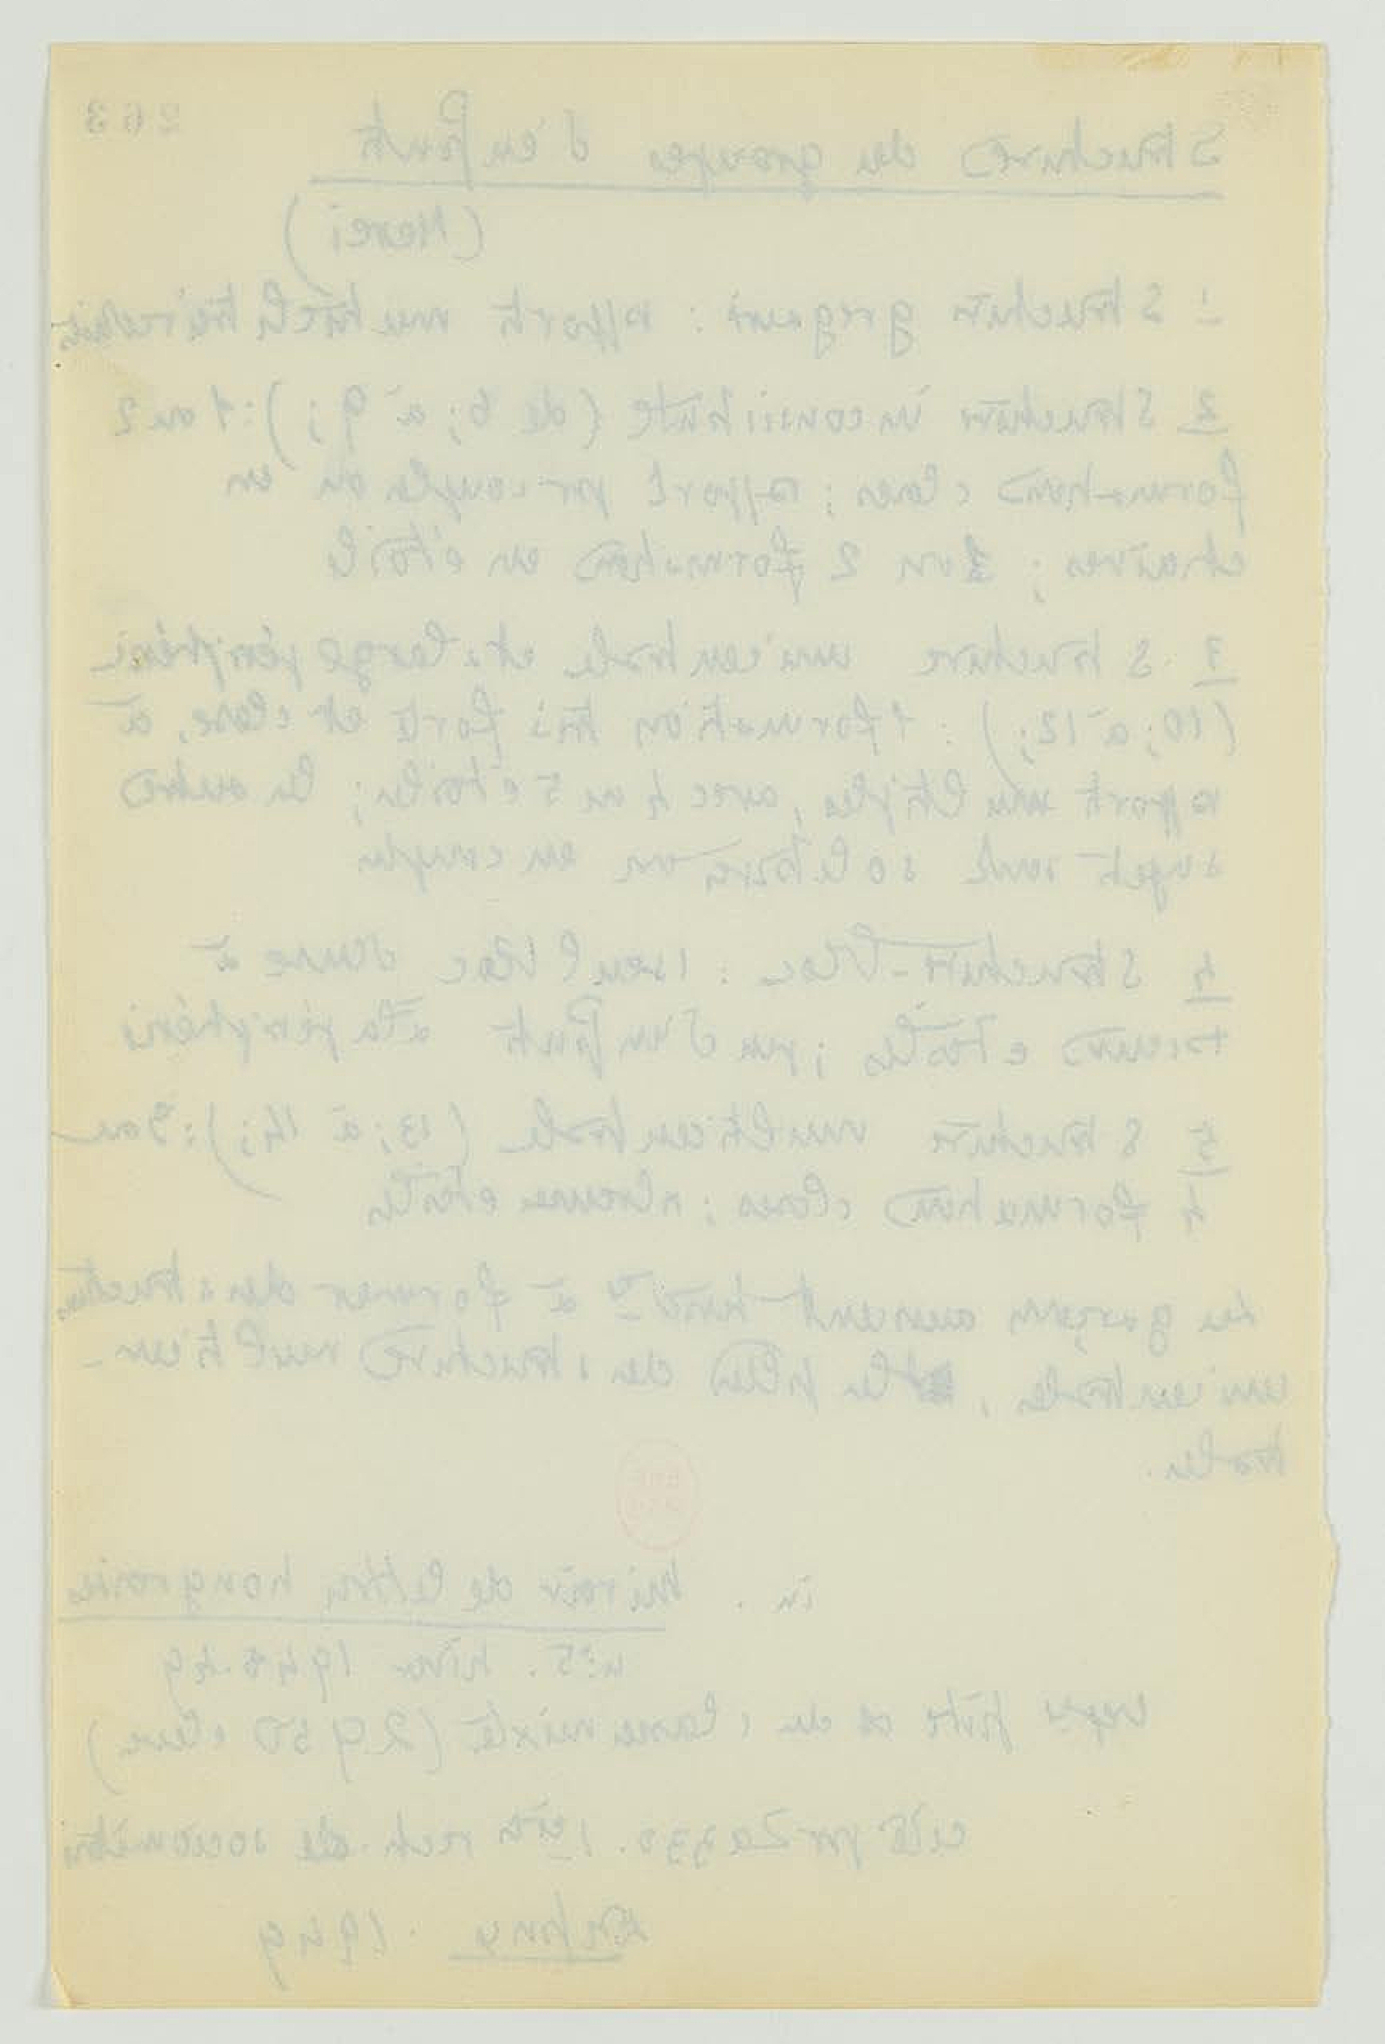 263
Structures des groupes d'enfants
(Merei)
1 Structure grégaire : rapports mutuels
2 Structure inconsistante (de 6; à 9;) : 1 ou 2
formations closes; rapport par couples ou en
chaînes; 1 ou 2 formations en étoile
3 Structure unicentrale et à large périphérie
(10; à 12;) : 1 formation très forte et close, à
rapports multiples, avec 4 ou 5 étoiles; les autres
sujets sont solitaires ou en couples
4 Structure-bloc : 1 seul bloc dense à
étoiles; peu d'enfants à la périphérie
5 Structure multicentrale (13; à 14;) : 3 ou
4 formations closes; étoiles
Les garçons auraient tendce à former des structures
unicentrales, les filles des structures multicen-
trales.
in. Miroir des lettres hongroises
n°5. hiver 1948-49
faite ds des classes mixtes (2950 élèves)
cité par Lazzo. 1ères rech. de sociométrie
1949